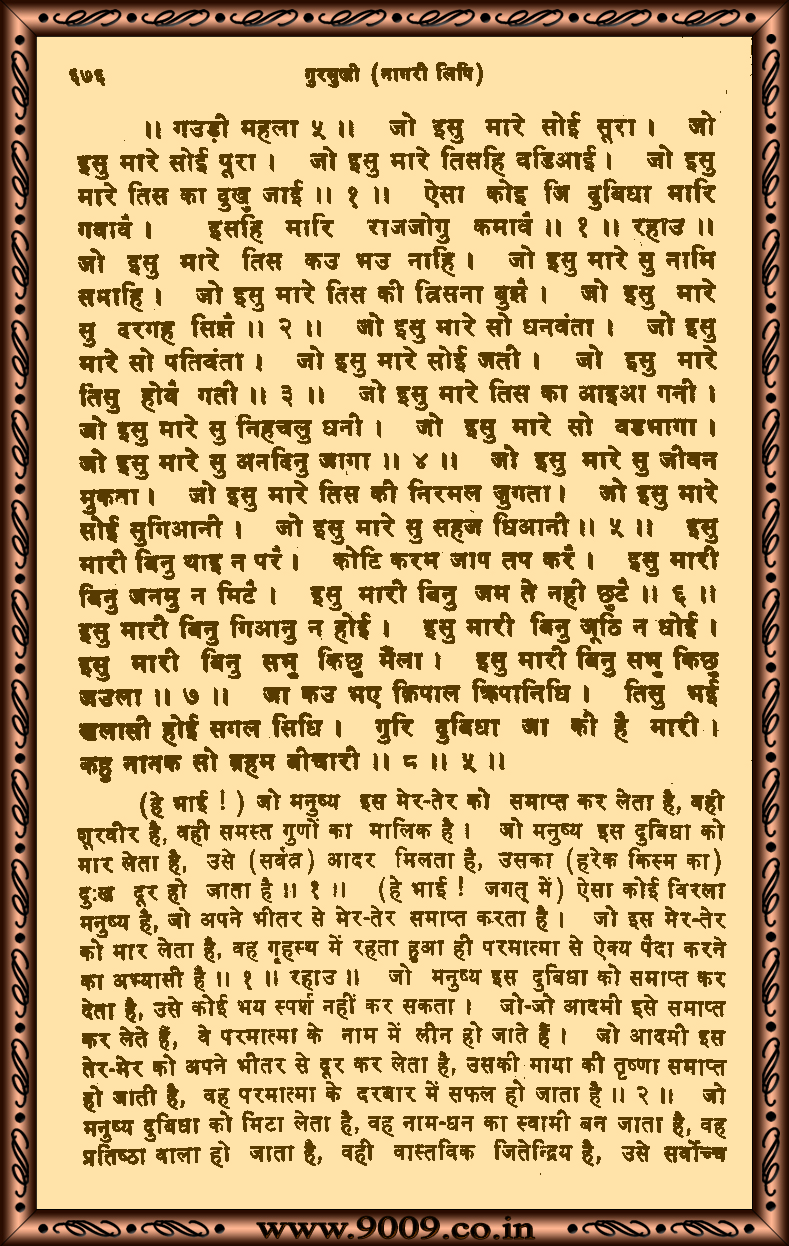 ६७६ गुरमुखी (नागरी लिपि)
॥ गउड़ी महला ५ ॥ जो इसु मारे सोई सूरा । जो
इसु मारे सोई पूरा । जो इसु मारे तिसहि वडिआई । जो इसु
मारे तिस का दुखु जाई ॥ १ ॥ ऐसा कोइ जि दुबिधा मारि
गवावै । इसहि मारि राजजोगु कमावै ॥ १ ॥ रहाउ ॥
जो इसु मारे तिस कउ भउ नाहि । जो इसु मारे सु नामि
समाहि । जो इसु मारे तिस की त्रिसना बुझै । जो इसु मारे
सु दरगह सिझै ॥ २ ॥ जो इसु मारे सो धनवंता । जो इसु
मारे सो पतिवंता । जो इसु मारे सोई जती । जो इसु मारे
तिसु होवै गती ॥ ३ ॥ जो इसु मारे तिस का आइआ गनी ।
जो इसु मारे सु निहचलु धनी । जो इसु मारे सो वडभागा ।
जो इसु मारे सु अनदिनु जागा ॥ ४ ॥ जो इसु मारे सु जीवन
मुकता । जो इसु मारे तिस की निरमल जुगता । जो इसु मारे
सोई सुगिआनी । जो इसु मारे सु सहज धिआनी ॥ ५ ॥ इसु
मारी बिनु थाइ न परै । कोटि करम जाप तप करै । इसु मारी
बिनु जनमु न मिटै । इसु मारी बिनु जम ते नही छुटै ॥ ६ ॥
इसु मारी बिनु गिआनु न होई । इसु मारी बिनु जूठि न धोई ।
इसु मारी बिनु सभु किछु मैला । इसु मारी बिनु सभु किछु
जउला ॥ ७ ॥ जा कउ भए क्रिपाल क्रिपानिधि । तिसु भई
खलासी होई सगल सिधि । गुरि दुबिधा जा की है मारी ।
कहु नानक सो ब्रहम बीचारी ॥ ८ ॥ ५ ॥
(हे भाई ! ) जो मनुष्य इस मेर-तेर को समाप्त कर लेता है, वही
शूरवीर है, वही समस्त गुणों का मालिक है । जो मनुष्य इस दुबिधा को
मार लेता है, उसे (सर्वत्र) आदर मिलता है, उसका (हरेक किस्म का)
दुःख दूर हो जाता है ॥ १ ॥ (हे भाई ! जगत् में) ऐसा कोई विरला
मनुष्य है, जो अपने भीतर से मेर-तेर समाप्त करता है । जो इस मेर-तेर
को मार लेता है, वह गृहस्थ में रहता हुआ ही परमात्मा से ऐक्य पैदा करने
का अभ्यासी है ॥ १ ॥ रहाउ ॥ जो मनुष्य इस दुबिधा को समाप्त कर
देता है, उसे कोई भय स्पर्श नहीं कर सकता । जो-जो आदमी इसे समाप्त
कर लेते हैं, वे परमात्मा के नाम में लीन हो जाते हैं । जो आदमी इस
तेर-मेर को अपने भीतर से दूर कर लेता है, उसकी माया की तृष्णा समाप्त
हो जाती है, वह परमात्मा के दरबार में सफल हो जाता है ॥ २ ॥ जो
मनुष्य दुबिधा को मिटा लेता है, वह नाम-धन का स्वामी बन जाता है, वह
प्रतिष्ठा वाला हो जाता है, वही वास्तविक जितेन्द्रिय है, उसे सर्वोच्च
www.9009.co.in